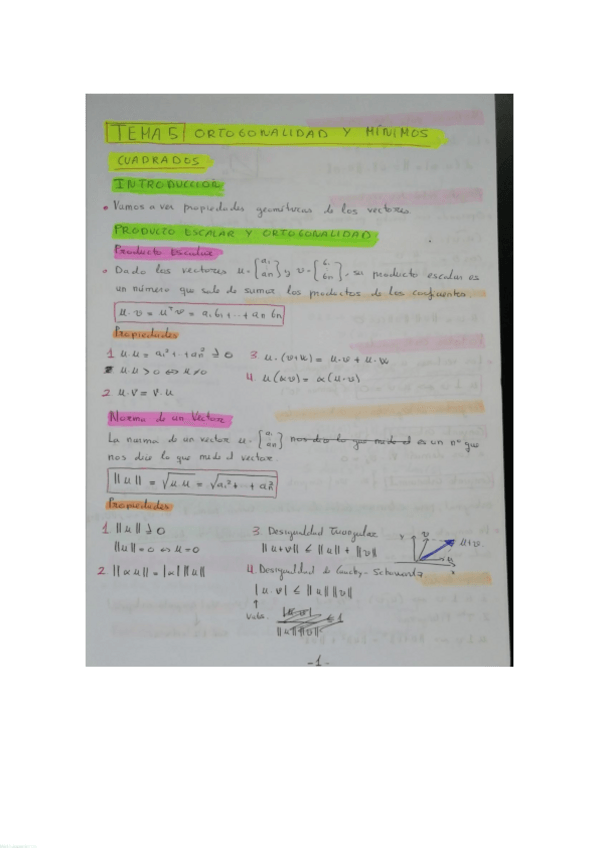 TEMA 5 ORTOGONALIDAD Y MÍNIMOS
CUADRADOS
INTRODUCCIÓN
• Vamos a ver propiedades geométricas de los vectores
PRODUCTO ESCALAR Y ORTOGONALIDAD
Producto Escalar
• Dado los vectores u = [a₁ an] y v = [b₁ bn], su producto escalar es
un número que sale de sumar los productos de los coeficientes.
u·v = uᵀv = a₁b₁ + ... + an bn
Propiedades
1 u.u = a₁² + ... + an² ≥ 0
u.u > 0 ⇔ u ≠ 0
2 u.v = v.u
3 u.(v+w) = u.v + u.w
4. u(αv) = α(u.v)
Norma de un Vector
La norma de un vector u = [a₁ an] nos dice lo que mide el es un nº que
nos dice lo que mide el vector.
||u|| = √u.u = √a₁² + ... + an²
Propiedades
1 ||u|| ≥ 0
||u|| = 0 ⇔ u = 0
2 ||αu|| = |α| ||u||
3 Desigualdad Triangular
||u+v|| ≤ ||u|| + ||v||
Y v u+v u x
4. Desigualdad de Cauchy-Schwarz
|u.v| ≤ ||u|| ||v||
↑
|u.v| ≤ 1
||u|| ||v||
-1-